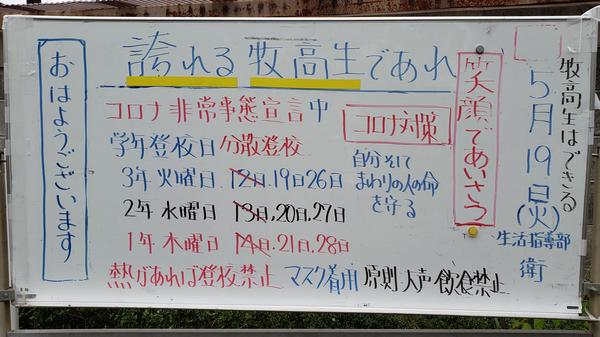 牧高生はできる
5月19日(火)
生活指導部
衛
笑顔であいさつ
誇れる牧高生であれ
おはようございます
コロナ非常事態宣言中
コロナ対策
学年登校日 分散登校
自分そして
まわりの人の命
を守る
3年 火曜日 12日.19日26日
2年 水曜日 13日,20日,27日
1年 木曜日 14日.21日.28日
熱があれば登校禁止 マスク着用 原則・大声・飲食禁止